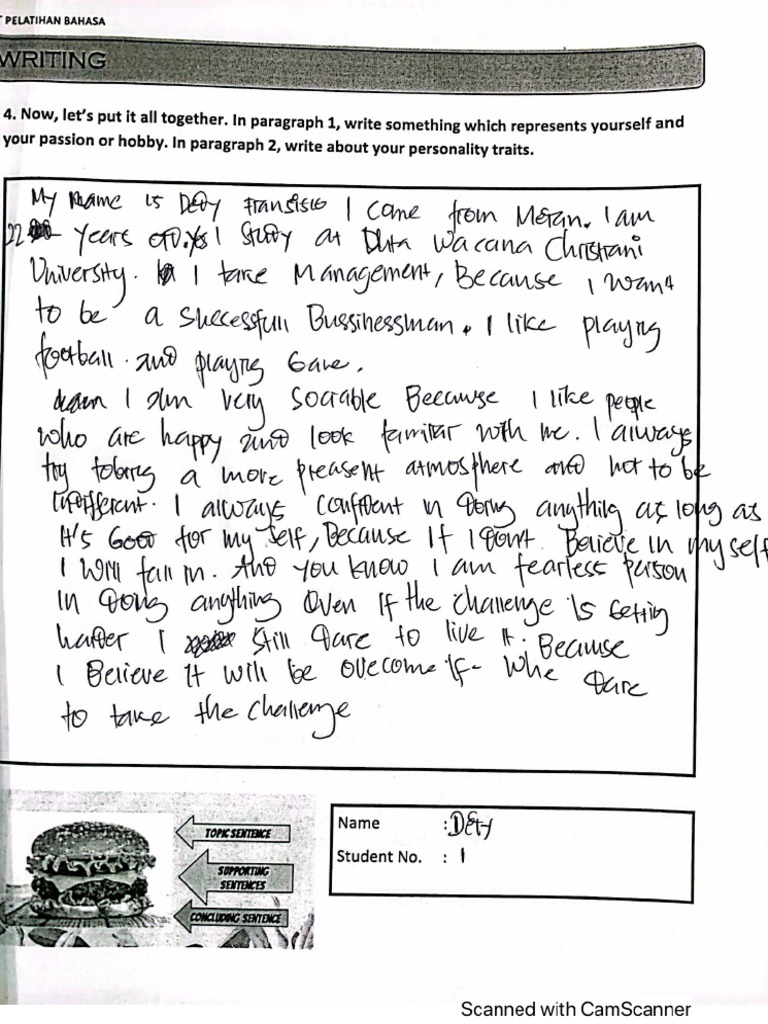 PELATIHAN BAHASA
WRITING
4. Now, let's put it all together. In paragraph 1, write something which represents yourself and
your passion or hobby. In paragraph 2, write about your personality traits.
My name is Fransisko I came from I am
22 years I study at Duta Wacana Christiani
University. I take Management, Because I want
to be a successfull Bussinessman. I like playing
football. and playing Game.
I am very sociable Because I like people
who are happy and look familiar with me. I always
try to bring a more preasent atmosphere and not to be
indifferent. I always confident in doing anything as long as
It's Good for my self, Because If I don't Believe in my self
I will fall in. And you know I am fearless person
in doing anything even if the challenge is getting
harder I still dare to live it. Because
I Believe it will be overcome if dare
to take the challenge
TOPIC SENTENCE
SUPPORTING
SENTENCES
CONCLUDING SENTENCE
Name :
Student No. : 1
Scanned with CamScanner